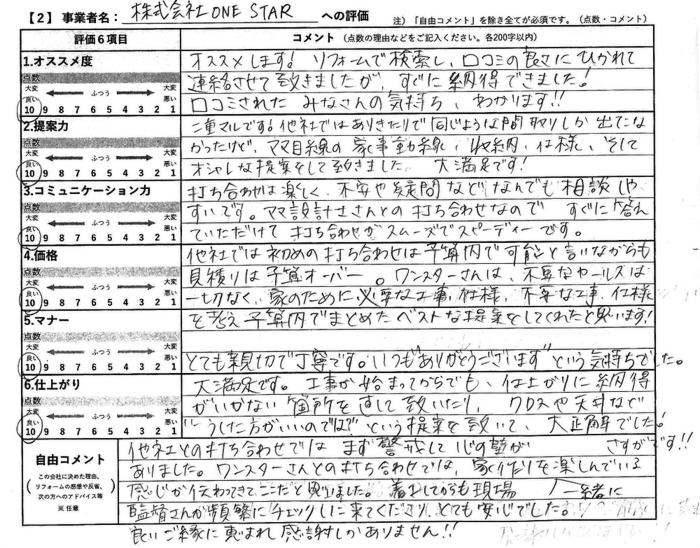 【2】事業者名: 株式会社 ONE STAR への評価 注)「自由コメント」を除き全てが必須です。(点数・コメント)
評価6項目 コメント(点数の理由などをご記入ください。各200字以内)
1.オススメ度
点数
大変良い ふつう 大変悪い
10 9 8 7 6 5 4 3 2 1
オススメします! リフォームで検索し、口コミの良さにひかれて
連絡させて致きましたが、すぐに納得できました!
口コミされた みなさんの気持ち、わかります!!
2.提案力
点数
大変良い ふつう 大変悪い
10 9 8 7 6 5 4 3 2 1
二重マルです!他社ではありきたりで同じような間取りしか出てこな
かったけど、ママ目線の家事動線、収納、仕様、そして
オシャレな提案をして致きました。大満足です!
3.コミュニケーション力
点数
大変良い ふつう 大変悪い
10 9 8 7 6 5 4 3 2 1
打ち合わせは楽しく、不安や疑問など、なんでも相談しや
すいです。ママ設計士さんとの打ち合わせなので すぐに答え
ていただけて 打ち合わせがスムーズでスピーディーです。
4.価格
点数
大変良い ふつう 大変悪い
10 9 8 7 6 5 4 3 2 1
他社では初めの打ち合わせは予算内で可能と言いながらも
見積りは予算オーバー。ワンスターさんは、不要なセールスは
一切なく、家のために必要な工事、仕様、不要な工事、仕様
を考え予算内でまとめたベストな提案をしてくれたと思います!
5.マナー
点数
大変良い ふつう 大変悪い
10 9 8 7 6 5 4 3 2 1
とても親切で丁寧です。いつも"ありがとうございます"という気持ちでした。
6.仕上がり
点数
大変良い ふつう 大変悪い
10 9 8 7 6 5 4 3 2 1
大満足です。工事が始まってからでも、仕上がりに納得
がいかない箇所を直して致いたり、クロスや天井など
"こうした方がいいのでは"という提案を致いて、大正解でした!
自由コメント
(この会社に決めた理由、
リフォームの感想や反省、
次の方へのアドバイス等)
※任意
他社との打ち合わせでは まず警戒して心の壁が さすがです!!
ありました。ワンスターさんとの打ち合わせでは、家作りを楽しんでいる
感じが伝わってきてここだと思いました。着工してからも現場 一緒に
監督さんが頻繁にチェックしに来てくださり、とても安心でした
良いご縁に恵まれ 感謝しかありません!!